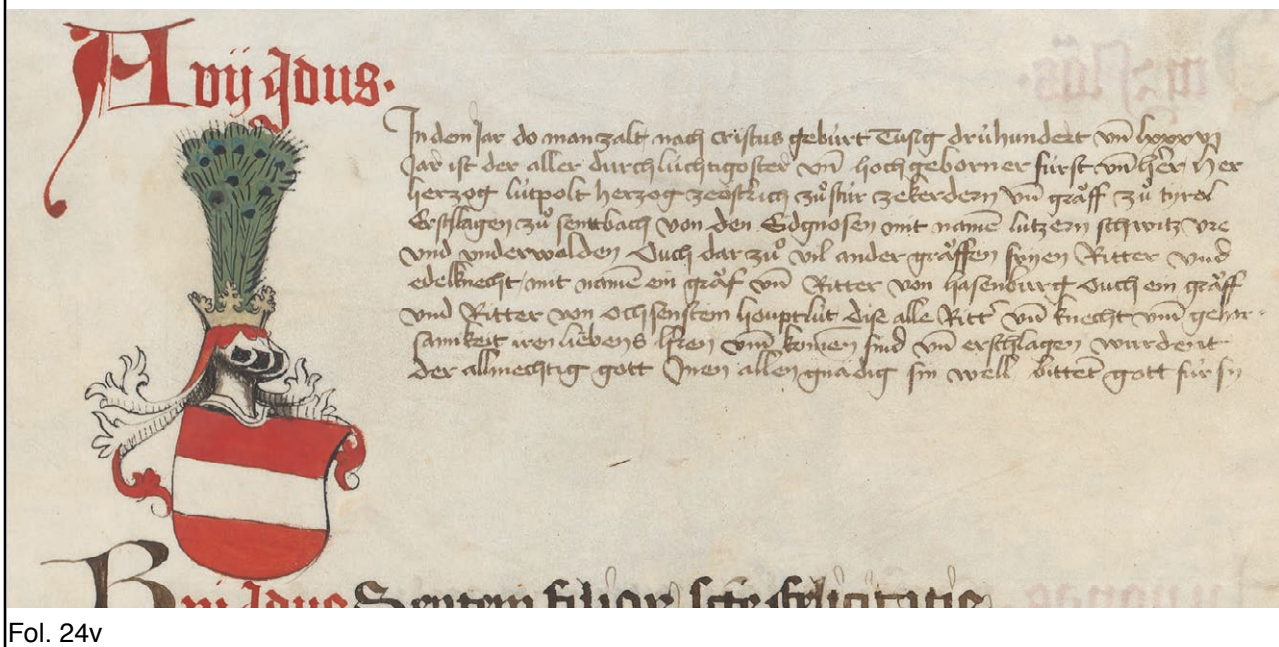 A vij Jdus.
In dem Jar do man zalt nach cristus gebürt Tusig drühundert vnd lxxxvj
Jar ist der aller durchlüchtigoster vnd hochgeborner fürst vnd her her
herzog lütpolt herzog zeöstrich zů stür zekerdern vnd gräff zů tyrol
Erschlagen zů sempach von den Eidgnosen mit namē lutzern schwitz vre
vnd vnderwalden Ouch dar zů vil ander gräffen fryen Ritter vnd
edelknecht mit namē ein gräf vnd Ritter von hasenburg Ouch ein gräff
vnd Ritter von Ochsenstein houptlüt dis alle Ritter vnd knecht vmb gehor-
samkeit iren liebens vmb komen sind vnd erschlagen wurdent
der allmechtig gott Jnen allen gnädig sin well bittet gott für sy
B vj Jdus Septem filior scte felicitatis
Fol. 24v